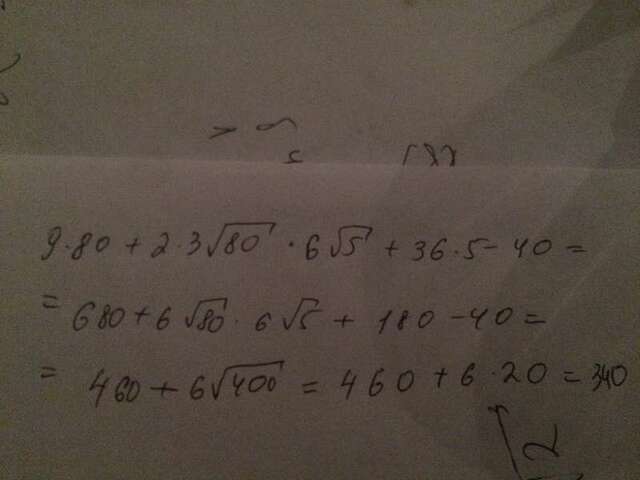 9·80 + 2·3√80 · 6√5 + 36·5 - 40 =
= 680 + 6√80 · 6√5 + 180 - 40 =
= 460 + 6√400 = 460 + 6·20 = 340
√2